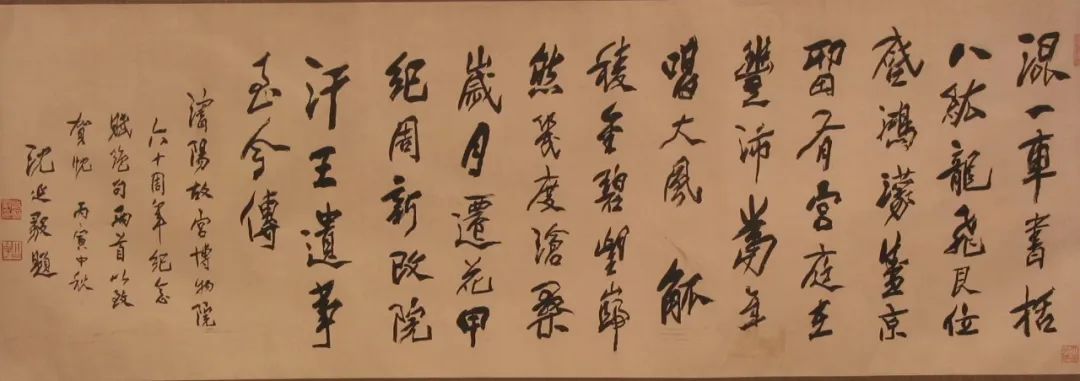 混一車書括
八紘龍飛艮位
啓鴻濛盛京
留有宮庭在
豐沛當年
唱大風 觚
稜金碧望巋
然幾度滄桑
歲月遷花甲
紀周新改院
汗王遺事
至今傳
瀋陽故宮博物院
六十周年紀念
賦絕句兩首以致
賀忱 丙寅中秋
沈延毅題